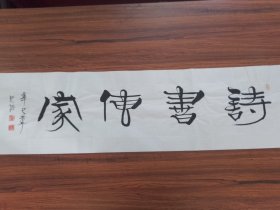 詩書傳家